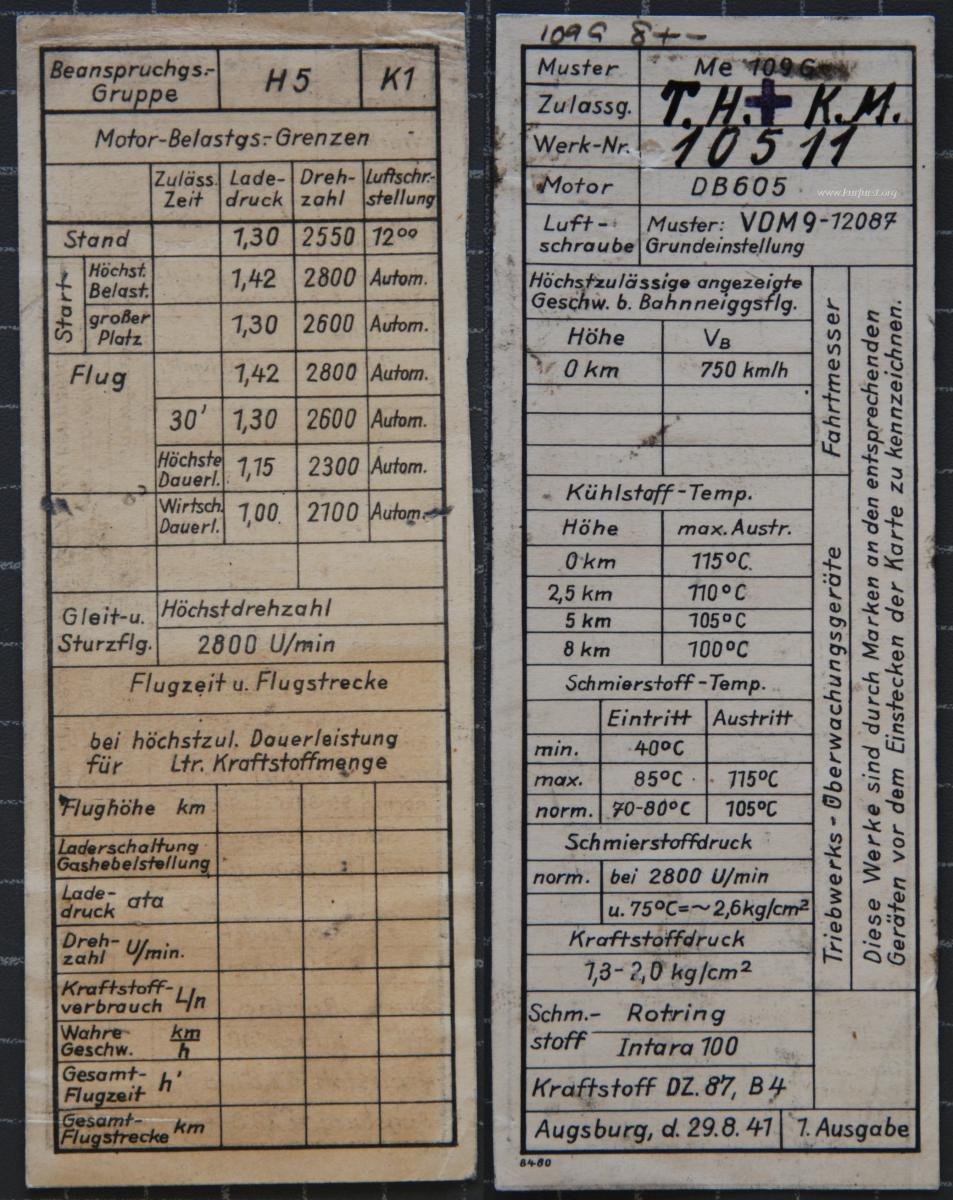 Beanspruchgs.-
Gruppe
H 5
K1
Motor-Belastgs.-Grenzen
Zuläss. Zeit
Lade-druck
Dreh-zahl
Luftschr.-stellung
Stand 1,30 2550 12⁰⁰
Start-
Höchst. Belast. 1,42 2800 Autom.
großer Platz 1,30 2600 Autom.
Flug 1,42 2800 Autom.
30' 1,30 2600 Autom.
Höchste Dauerl. 1,15 2300 Autom.
Wirtsch. Dauerl. 1,00 2100 Autom.
Gleit-u. Sturzflg.
Höchstdrehzahl
2800 U/min
Flugzeit u. Flugstrecke
bei höchstzul. Dauerleistung
für Ltr. Kraftstoffmenge
Flughöhe km
Laderschaltung
Gashebelstellung
Lade-druck ata
Dreh-zahl U/min.
Kraftstoff-verbrauch L/h
Wahre Geschw. km/h
Gesamt-Flugzeit h'
Gesamt-Flugstrecke km
109 G 8+-
Muster Me 109 G
Zulassg. T.H.+K.M.
Werk-Nr. 10511
Motor DB605
www.kurfurst.org
Luft-schraube
Muster: VDM9-12087
Grundeinstellung
Höchstzulässige angezeigte
Geschw. b. Bahnneiggsflg.
Höhe V_B
0 km 750 km/h
Fahrtmesser
Kühlstoff-Temp.
Höhe max. Austr.
0 km 115°C.
2,5 km 110°C
5 km 105°C
8 km 100°C
Schmierstoff-Temp.
Eintritt Austritt
min. 40°C
max. 85°C 115°C
norm. 70-80°C 105°C
Schmierstoffdruck
norm. bei 2800 U/min
u. 75°C=~2,6kg/cm²
Kraftstoffdruck
1,3-2,0 kg/cm²
Triebwerks-Überwachungsgeräte
Diese Werke sind durch Marken an den entsprechenden
Geräten vor dem Einstecken der Karte zu kennzeichnen.
Schm.-stoff
Rotring
Intara 100
Kraftstoff DZ. 87, B4
Augsburg, d. 29.8.41
1. Ausgabe
8480